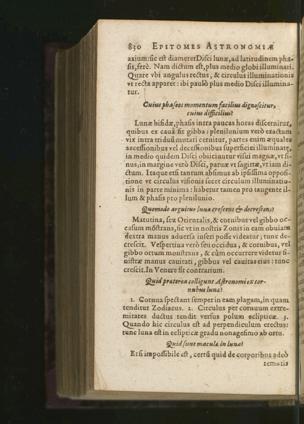 830 EPITOMES ASTRONOMIÆ
axium: sic est diameter Disci lunæ, ad latitudinem pha-
sis, ferè. Nam dictum est, plus medio globi illuminari.
Quare vbi angulus rectus, & circulus illuminationis
vt recta apparet: ibi paulò plus medio Disci illumina-
tur.
Cuius phaseos momentum facilius dignoscitur,
cuius difficilius?
Lunæ bisidæ, phasis intra paucas horas discernitur,
quibus ex cauâ fit gibba: plenilunium verò exactum
vix intra triduū mutari cernitur, partes enim æquales
accessionibus vel decessionibus superficiei illuminatæ,
in medio quidem Disci obiiciuntur visui magnæ, vt si-
nus, in margine verò Disci, paruæ vt sagittæ, etiam di-
ctum. Itaque etsi tantum absimus ab ipsissima opposi-
tione vt circulus visionis secet circulum illuminatio-
nis in parte minima: habetur tamen pro tangente il-
lum & phasis pro plenilunio.
Quomodo arguitur luna crescens & decrescens?
Matutina, seu Orientalis, & cornibus vel gibbo oc-
casum mōstrans, sic vt in nostris Zonis in eam obuiam
dextra manus aduersa inseri posse videatur; tunc de-
crescit. Vespertina verò seu occidua, & cornibus, vel
gibbo ortum monstrans, & cùm occurrere videtur si-
nistræ manus cauitati, gibbus vel cauitas eius: tunc
crescit. In Venere fit contrarium.
Quid præterea colligunt Astronomi ex cor-
nubus luna?
1. Cornua spectant semper in eam plagam, in quam
tenditur Zodiacus. 2. Circulus per cornuum extre-
mitates ductus tendit versus polum eclipticæ. 3.
Quando hic circulus est ad perpendiculum erectus:
tunc luna est in eclipticæ gradu nonagesimo ab ortu.
Quid sunt macula in luna?
Etsi impossibile est, certū quid de corporibus adeò
remotis